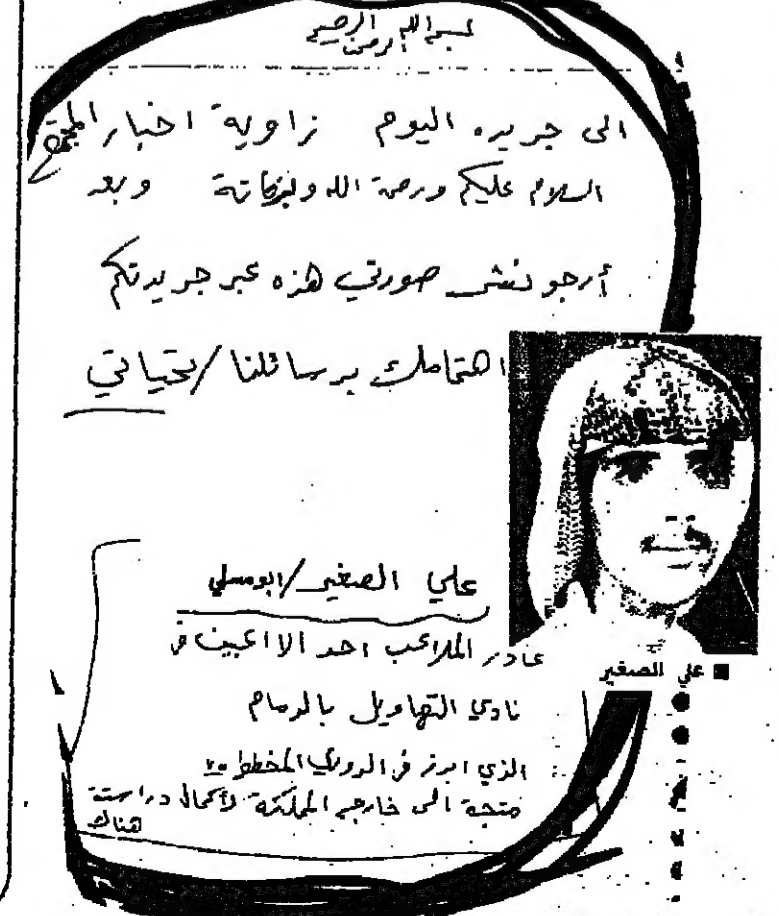 بسم الله الرحمن الرحيم
الى جريده اليوم زاوية اخبار المجتمع
السلام عليكم ورحمة الله وبركاتة وبعد
أرجو نشر صورتي هذه عبر جريدتكم
اهتمامك برسائلنا / تحياتي
علي الصغير / ابو
علي الصغير
غادر الملاعب احد الااعبين في
نادي التهاويل بالدمام
الذي ابرز في الدوري المخطط
متجة الى خارج المملكة لأكمال دراستة
هناك